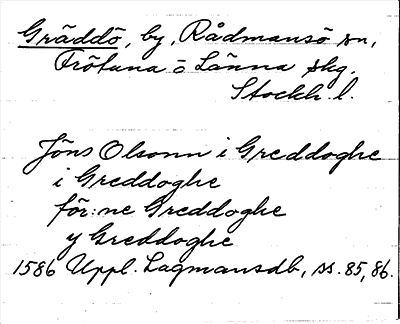 Gräddö, by, Rådmansö sn,
Frötuna o Länna skg.
Stockh. l.
Jöns Olsonn i Greddoghe
i Greddoghe
för:ne Greddoghe
y Greddoghe
1586 Uppl. Lagmansdb, ss. 85, 86.